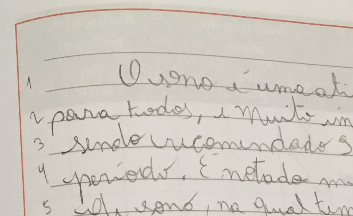 1 O sono é uma ati
2 para todos, é muito im
3 sendo recomendado 9
4 período. É notado m
5 sono, na qual tem